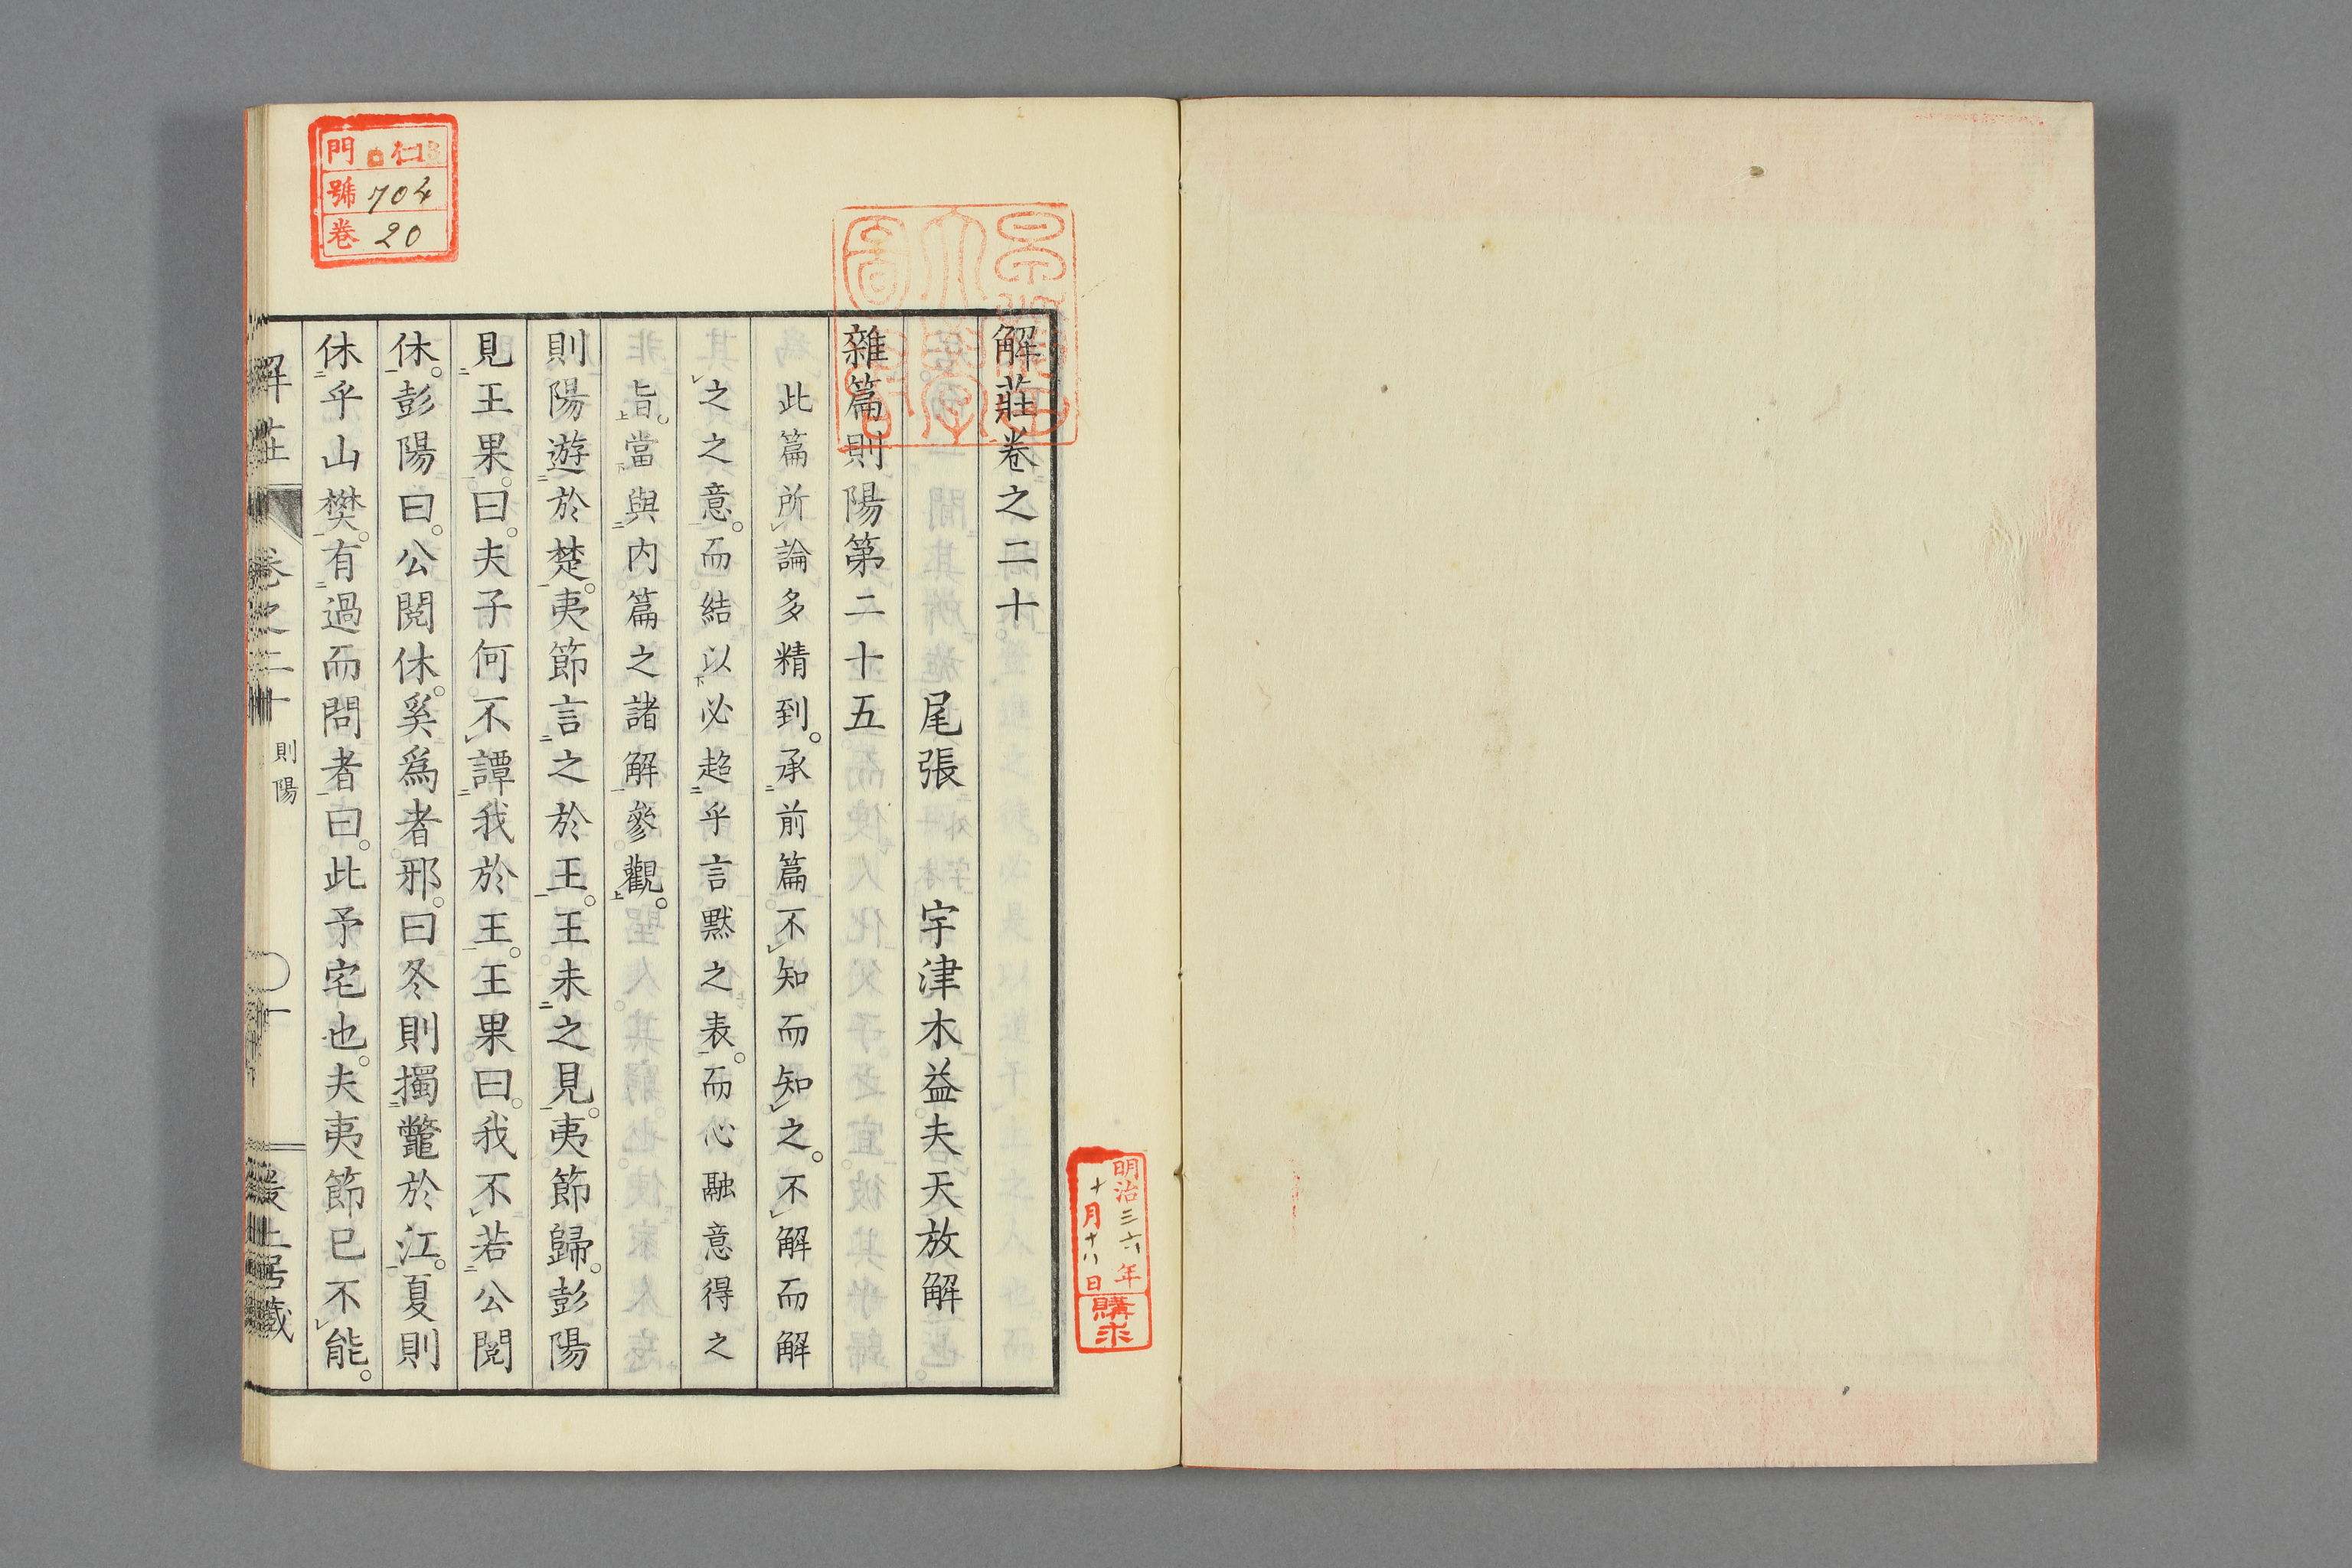 解莊卷之二十
尾張　宇津木益夫天放解
雜篇則陽第二十五
此篇所論多精到。承前篇不知而知之。不解而解
之之意。而結以必超乎言黙之表。而心融意得之
旨。當與内篇之諸解參觀。
則陽遊於楚。夷節言之於王。王未之見。夷節歸。彭陽
見王果。曰。夫子何不譚我於王。王果曰。我不若公閱
休。彭陽曰。公閱休。奚爲者邪。曰冬則擉鼈於江。夏則
休乎山樊。有過而問者。曰。此予宅也。夫夷節已不能。
解莊
卷之二十
則陽
一
居藏
門 仁
號 704
卷 20
明治三六年
十月十八日
購求